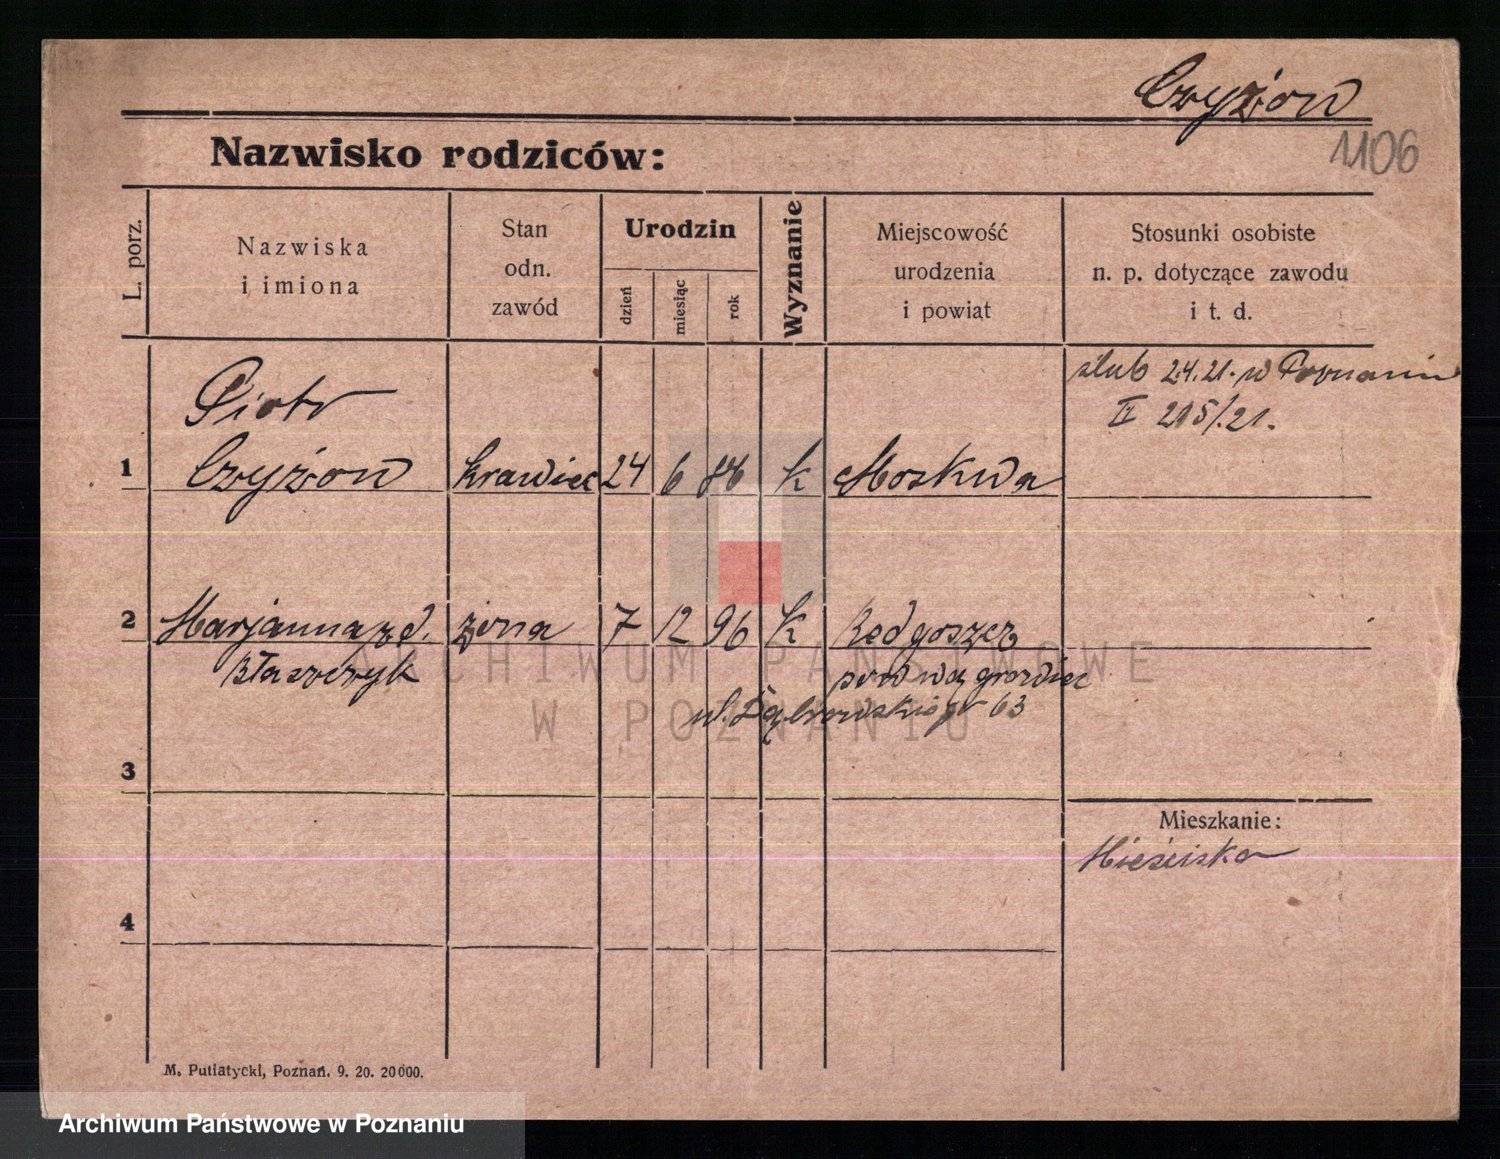 Czyżon
1106
Nazwisko rodziców:
L. porz.
Nazwiska
i imiona
Stan
odn.
zawód
Urodzin
dzień
miesiąc
rok
Wyznanie
Miejscowość
urodzenia
i powiat
Stosunki osobiste
n. p. dotyczące zawodu
i t. d.
ślub 2.4.21. w Poznaniu
II 215/.21.
Piotr
1 Czyżon krawiec 24 6 86 k Moskwa
2 Marjanna zd. żona 7 12 96 K Redgoszcz
Błaszczyk pow wągrowiec
ul. Dąbrowskiego 63
3
Mieszkanie:
Mieściska
4
M. Putiatycki, Poznań. 9. 20. 20000.
ARCHIWUM PAŃSTWOWE
W POZNANIU
Archiwum Państwowe w Poznaniu